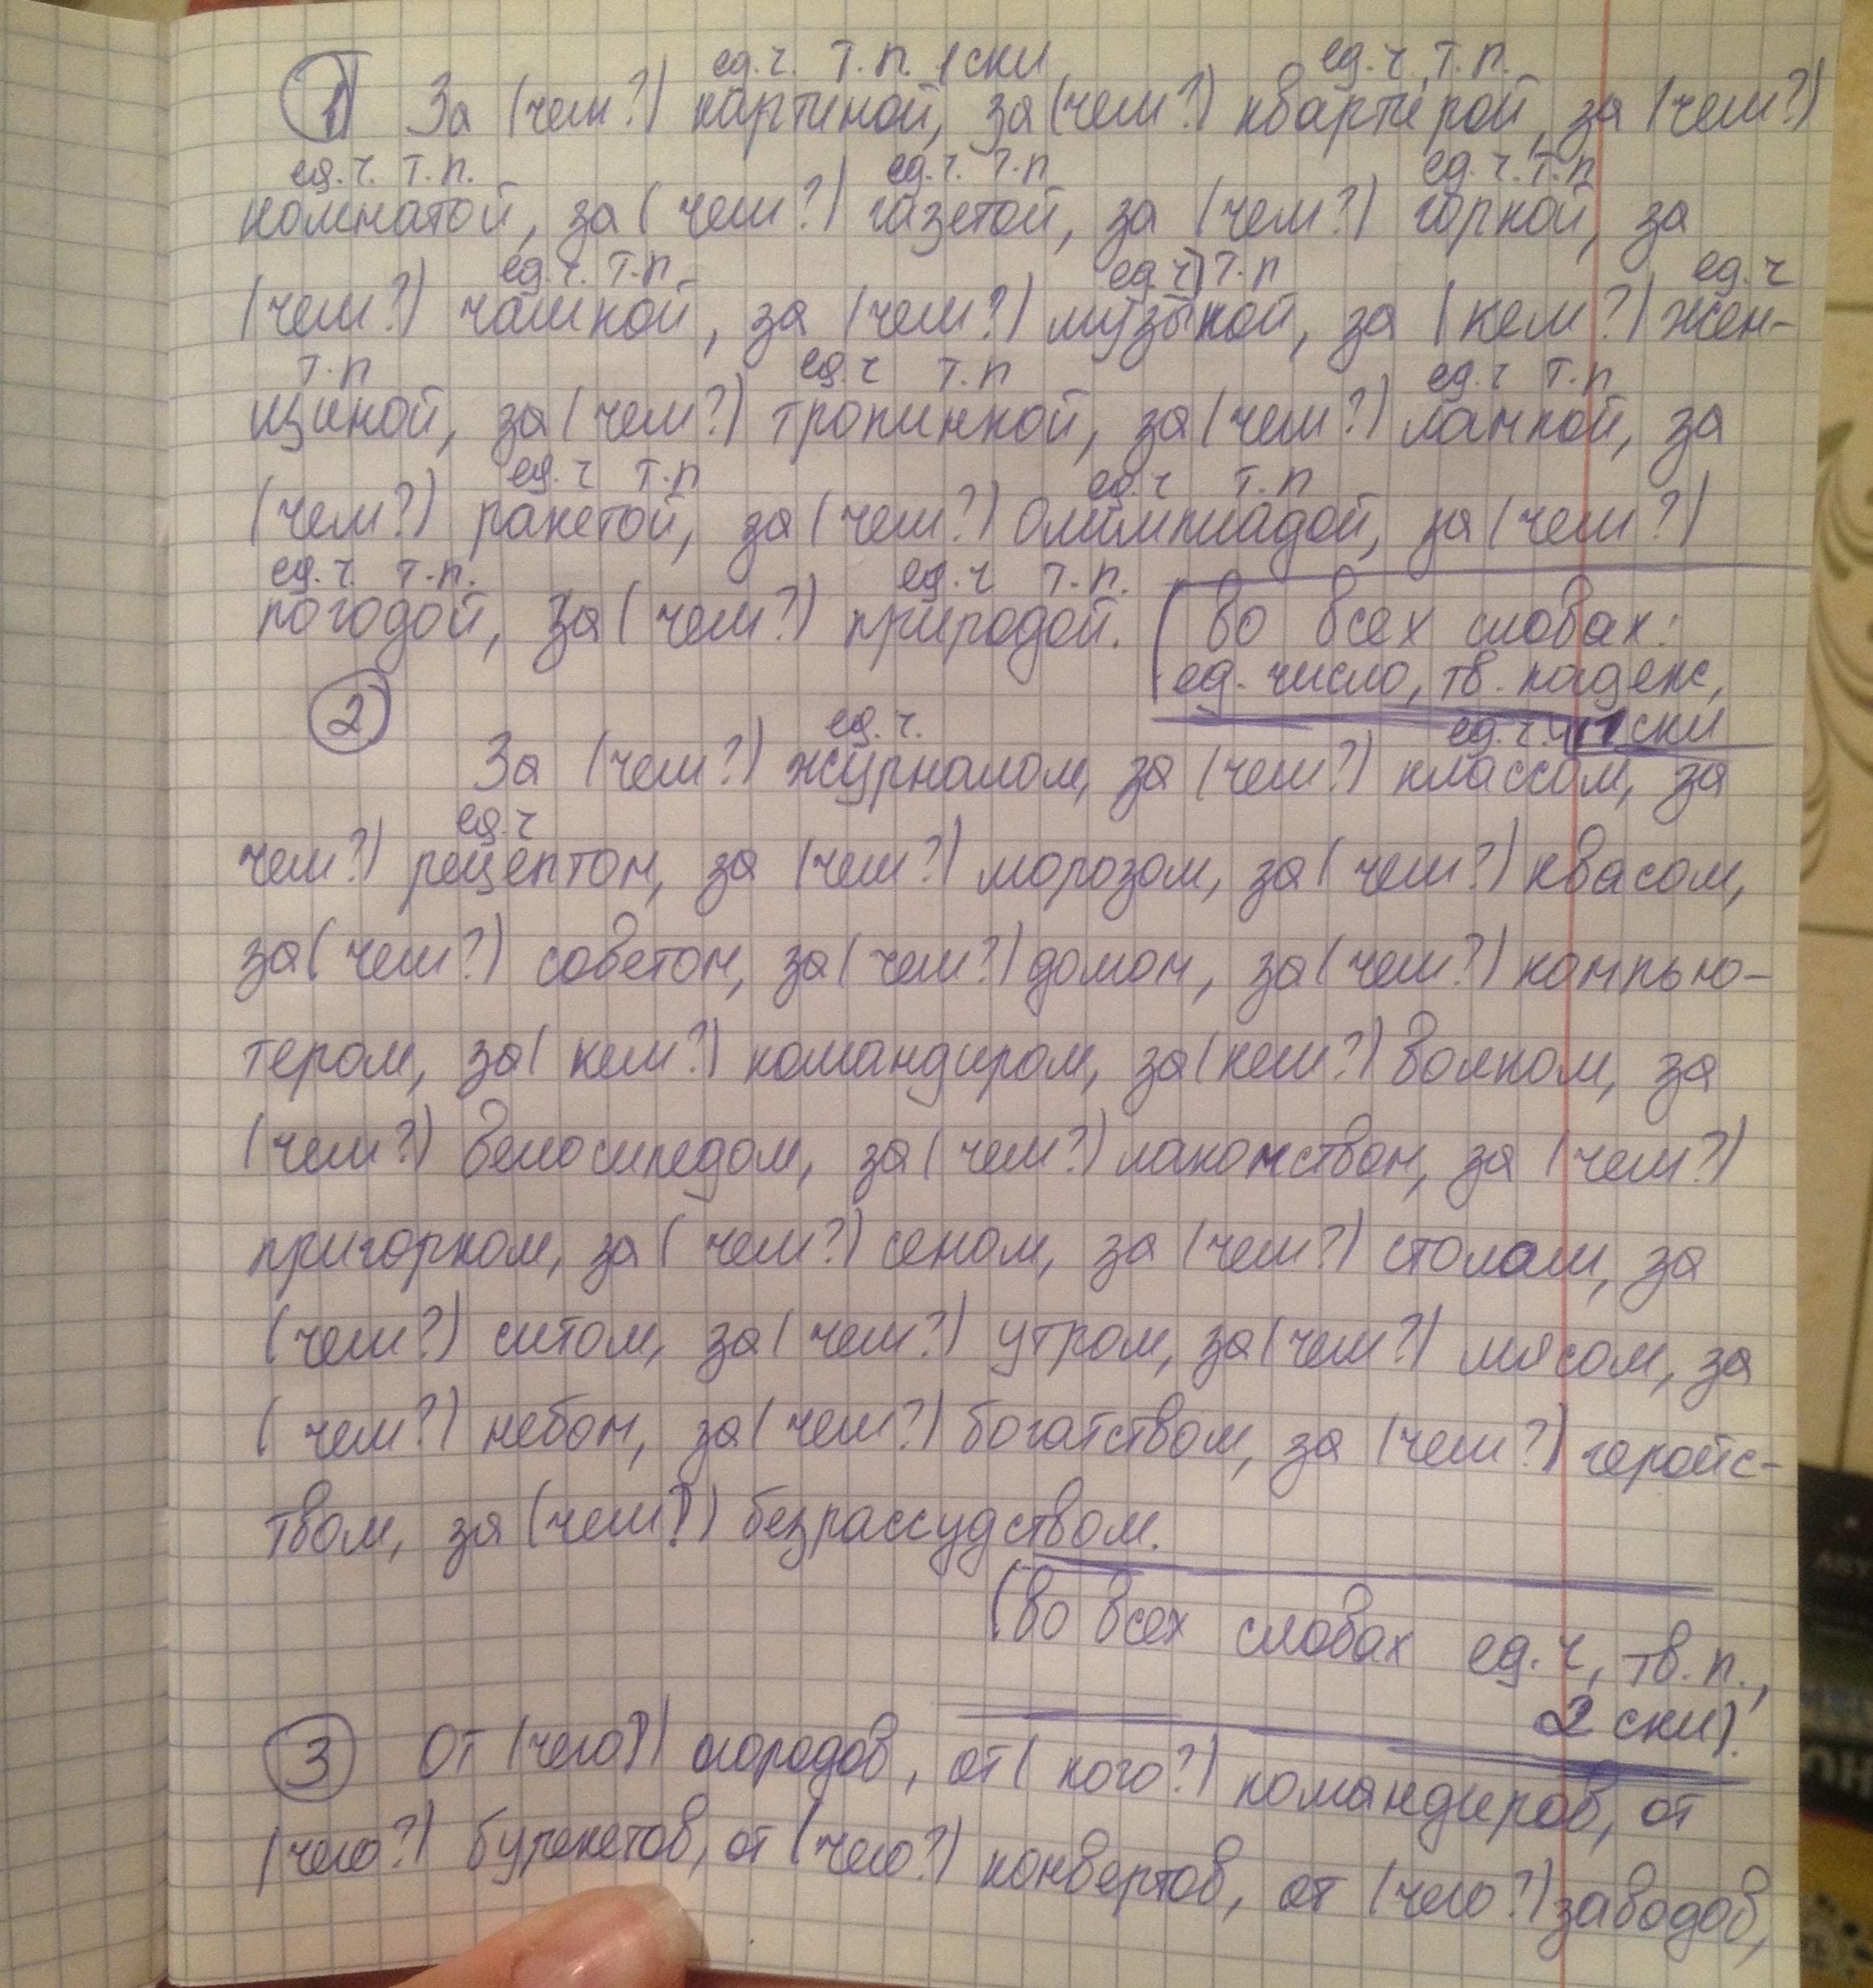 ед.ч. т.п. 1 скл ед.ч. т.п.
1) За (чем?) картиной, за (чем?) квартирой, за (чем?)
ед.ч. т.п. ед.ч. т.п ед.ч. т.п
комнатой, за (чем?) газетой, за (чем?) горкой, за
ед.ч. т.п ед.ч) т.п ед.ч
(чем?) чашкой, за (чем?) музыкой, за (кем?) жен-
т.п ед.ч т.п ед.ч т.п
щиной, за (чем?) тропинкой, за (чем?) лампой, за
ед.ч т.п ед.ч т.п
(чем?) ракетой, за (чем?) олимпиадой, за (чем?)
ед.ч. т.п. ед.ч т.п.
погодой, за (чем?) природой. (во всех словах:
ед. число, тв. падеж,
1 скл
2) ед.ч. ед.ч.
За (чем?) журналом, за (чем?) классом, за
ед.ч
чем?) рецептом, за (чем?) морозом, за (чем?) квасом,
за (чем?) советом, за (чем?) домом, за (чем?) компью-
тером, за (кем?) командиром, за (кем?) волком, за
(чем?) велосипедом, за (чем?) лакомством, за (чем?)
пригорком, за (чем?) сеном, за (чем?) столом, за
(чем?) ситом, за (чем?) утром, за (чем?) мясом, за
(чем?) небом, за (чем?) богатством, за (чем?) геройс-
твом, за (чем?) безрассудством.
(во всех словах ед.ч, тв.п.,
2 скл).
3 От (чего?) огородов, от (кого?) командиров, от
(чего?) букетов, от (чего?) конвертов, от (чего?) заводов,